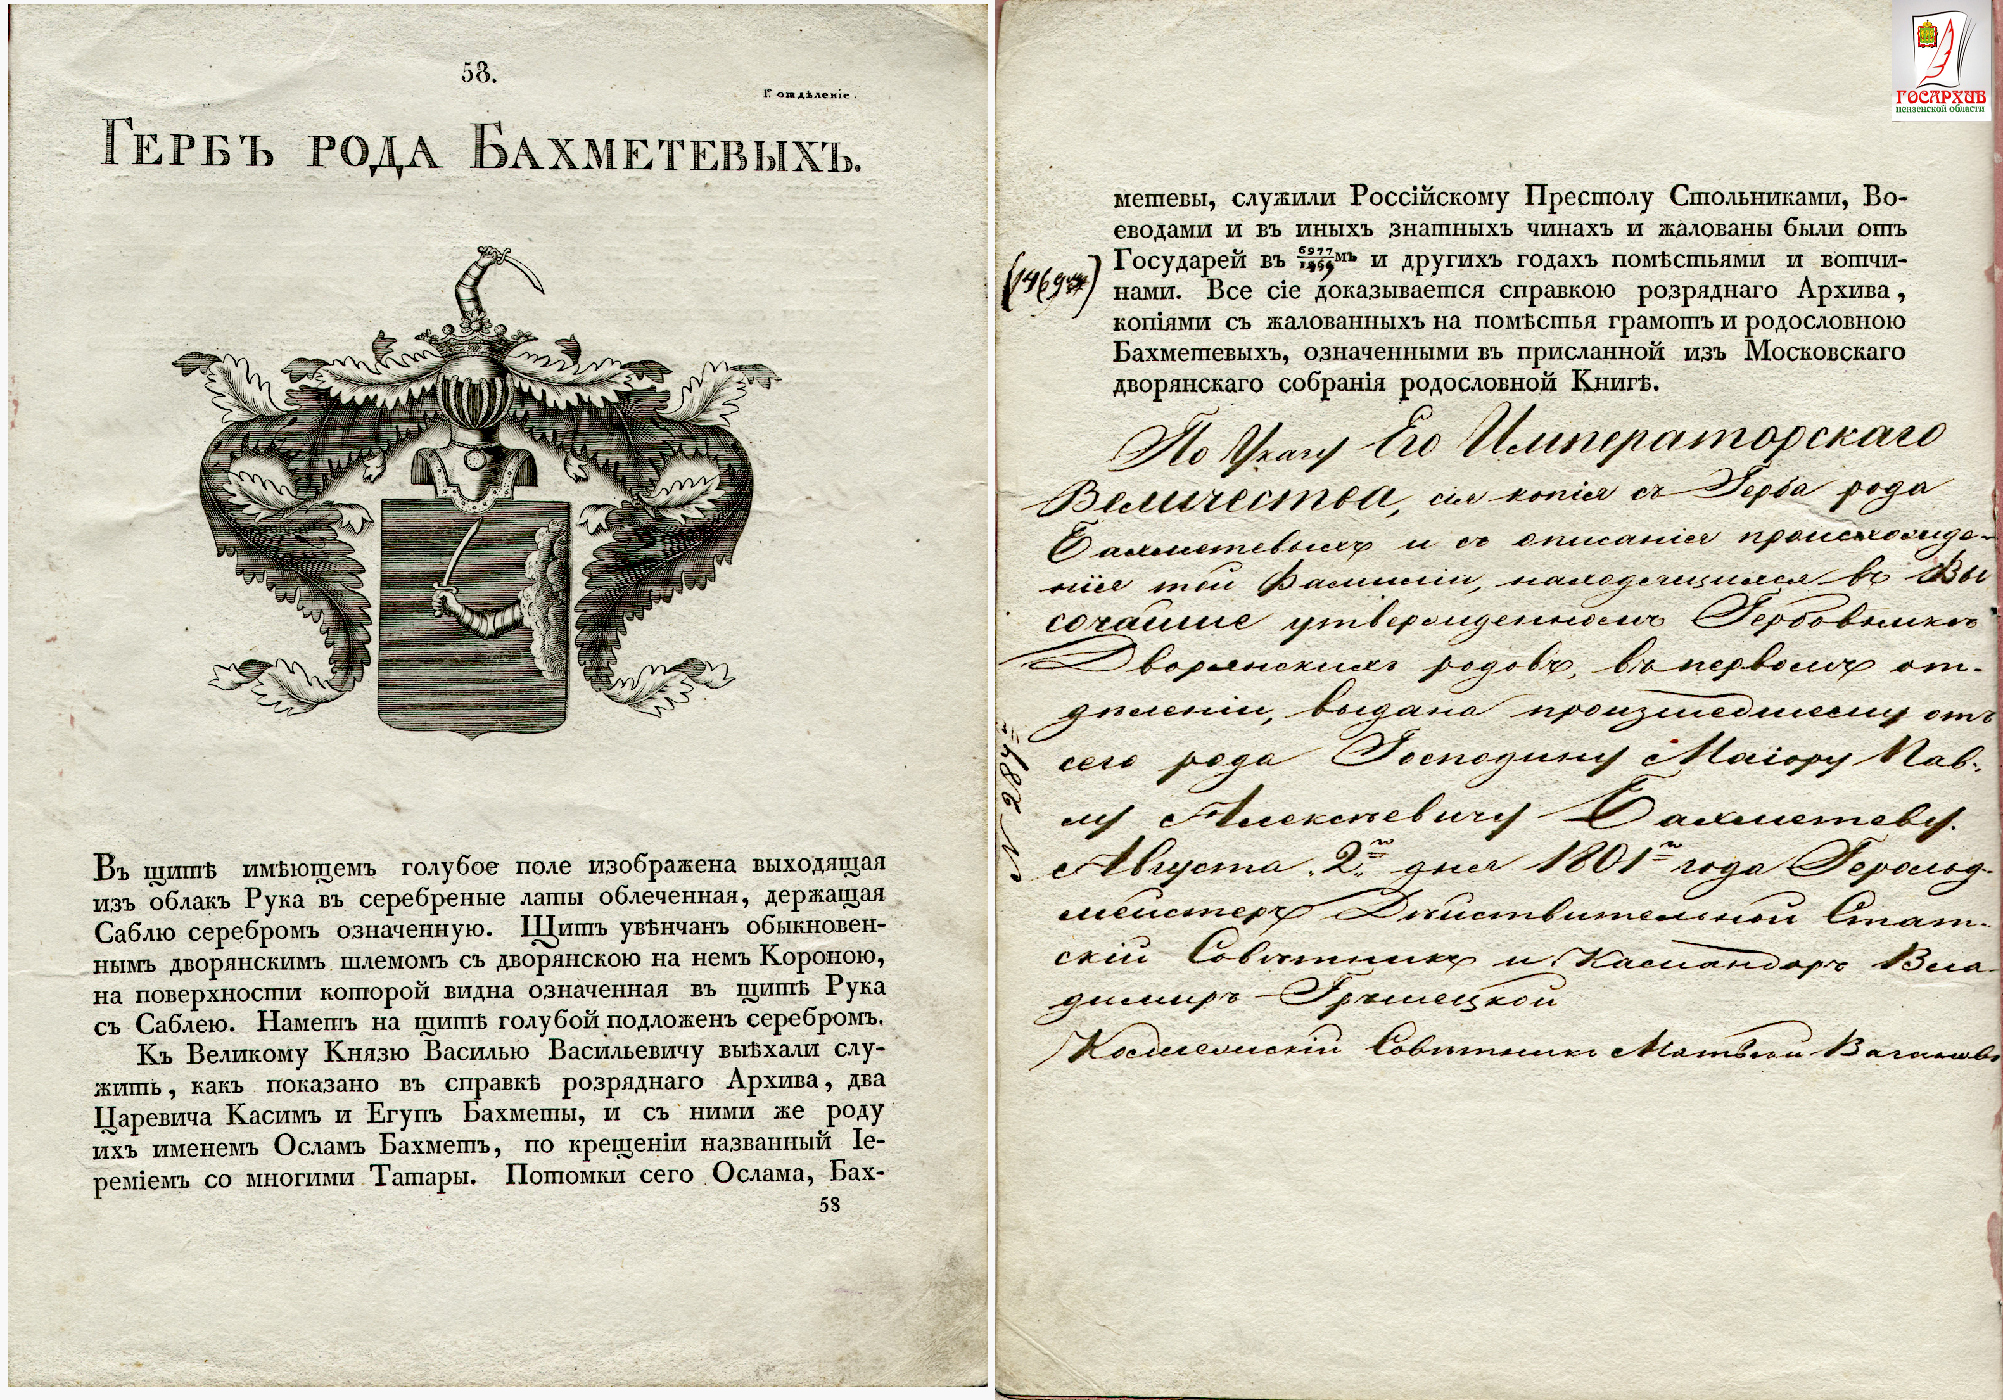 58.
I. отдѣленіе.
Гербъ рода Бахметевыхъ.
Въ щитѣ имѣющемъ голубое поле изображена выходящая
изъ облакъ Рука въ серебреные латы облеченная, держащая
Саблю серебромъ означенную. Щитъ увѣнчанъ обыкновен-
нымъ дворянскимъ шлемомъ съ дворянскою на немъ Короною,
на поверхности которой видна означенная въ щитѣ Рука
съ Саблею. Наметъ на щитѣ голубой подложенъ серебромъ.
Къ Великому Князю Василью Васильевичу выѣхали слу-
жить, какъ показано въ справкѣ розряднаго Архива, два
Царевича Касимъ и Егупъ Бахметы, и съ ними же роду
ихъ именемъ Осламъ Бахметъ, по крещеніи названный Іе-
реміемъ со многими Татары. Потомки сего Ослама, Бах-
58
ГОСАРХИВ
пензенской области
метевы, служили Россійскому Престолу Стольниками, Во-
еводами и въ иныхъ знатныхъ чинахъ и жалованы были отъ
Государей въ 6977/1469мъ и другихъ годахъ помѣстьями и вотчи-
нами. Все сіе доказывается справкою розряднаго Архива,
копіями съ жалованныхъ на помѣстья грамотъ и родословною
Бахметевыхъ, означенными въ присланной изъ Московскаго
дворянскаго собранія родословной Книгѣ.
(1469)
По Указу Его Императорскаго
Величества, сія копія съ Герба рода
Бахметевыхъ и съ описанія происхожде-
нія той Фамиліи, находящихся въ Вы
сочайше утвержденномъ Гербовникѣ
Дворянскихъ родовъ, въ первомъ от-
дѣленіи, выдана произшедшему отъ
сего рода Господину Маіору Пав-
лу Алексѣевичу Бахметеву.
Августа 2го дня 1801го года Герольд-
мейстеръ Дѣйствительной Стат-
скій Совѣтникъ и Каммандоръ Вла-
димиръ Грушецкой
Совѣтникъ Матвѣй
N 284й